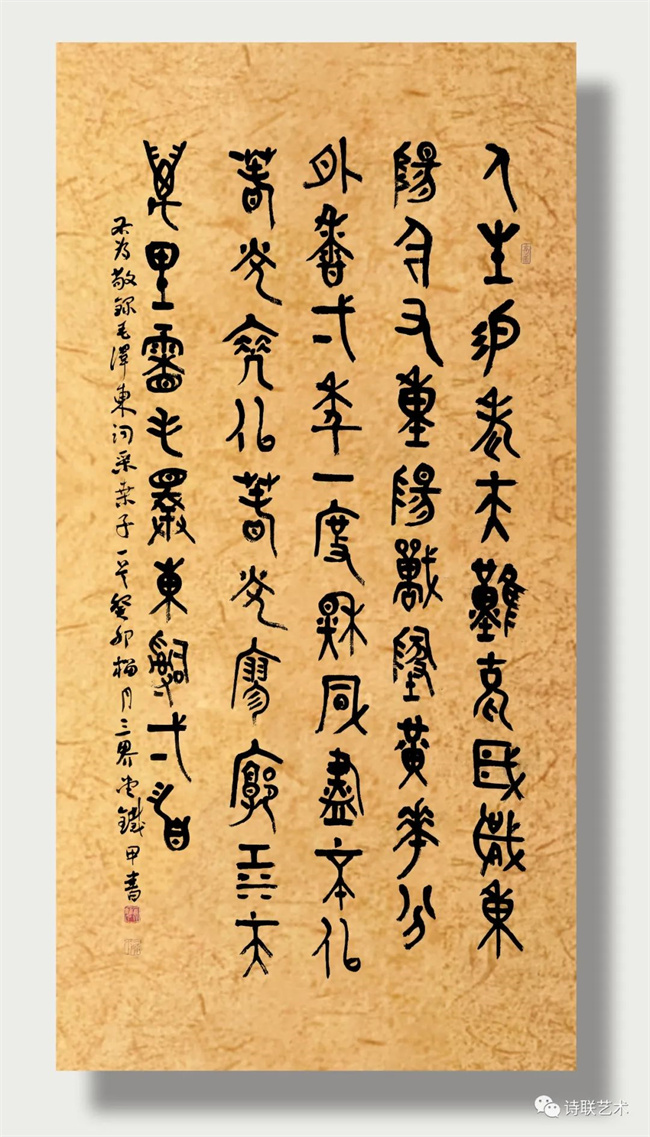 人生易老天難老歲歲重
陽今又重陽戰地黃花分
外香弌年一度秋風勁不似
春光勝似春光寥廓江天
萬里霜毛澤東詞弌首
敬錄毛澤東詞采桑子一首癸卯榴月三界堂鐵甲書
诗联艺术